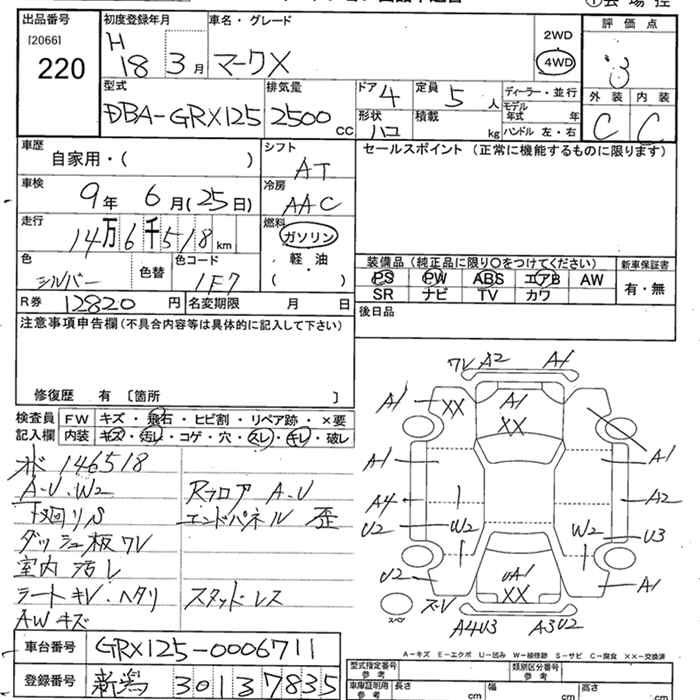 出品番号
[2066]
220
初度登録年月
H
18 3月
車名・グレード
マークX
2WD
4WD
評価点
3
外装 内装
C C
型式
DBA-GRX125
排気量
2500 cc
ドア 4
形状 ハコ
定員 5 人
積載 kg
ディーラー・並行
モデル年式 年
ハンドル 左・右
車歴
自家用・( )
シフト
AT
車検
9年 6月(25日)
冷房
AAC
走行
14万6千518km
燃料
ガソリン
軽・油
( )
色
シルバー
色替
色コード
1F7
R券 12820円 名変期限 月 日
セールスポイント (正常に機能するものに限ります)
装備品 (純正品に限り○をつけてください)
PS PW ABS エアB AW
SR ナビ TV カワ
新車保証書
有・無
後日品
注意事項申告欄(不具合内容等は具体的に記入して下さい)
修復歴 有 〔箇所 〕
検査員 FW キズ・飛石・ヒビ割・リペア跡・×要
記入欄 内装 キズ・汚レ・コゲ・穴・スレ・キレ・破レ
146518
A-U・W2
下廻りS
ダッシュ板ワレ
室内汚レ
シートキレ・ヘタリ
AWキズ
Rフロア A-U
エンドパネル 歪
スタッドレス
ワレ A2 A1
A1 XX A1 XX
A1 A1
A4 A2
U2 W2 W2 U3
U2 UA1 XX A1
スペア
A4U3 A3U2
A-キズ E-エクボ U-凹み W-補修跡 S-サビ C-腐食 XX-交換済
車台番号 GRX125-0006711
登録番号 新潟 301 ヲ 7835
型式指定番号 参考
類別区分番号 参考
車庫証明用 参考
長さ cm
幅 cm
高さ cm